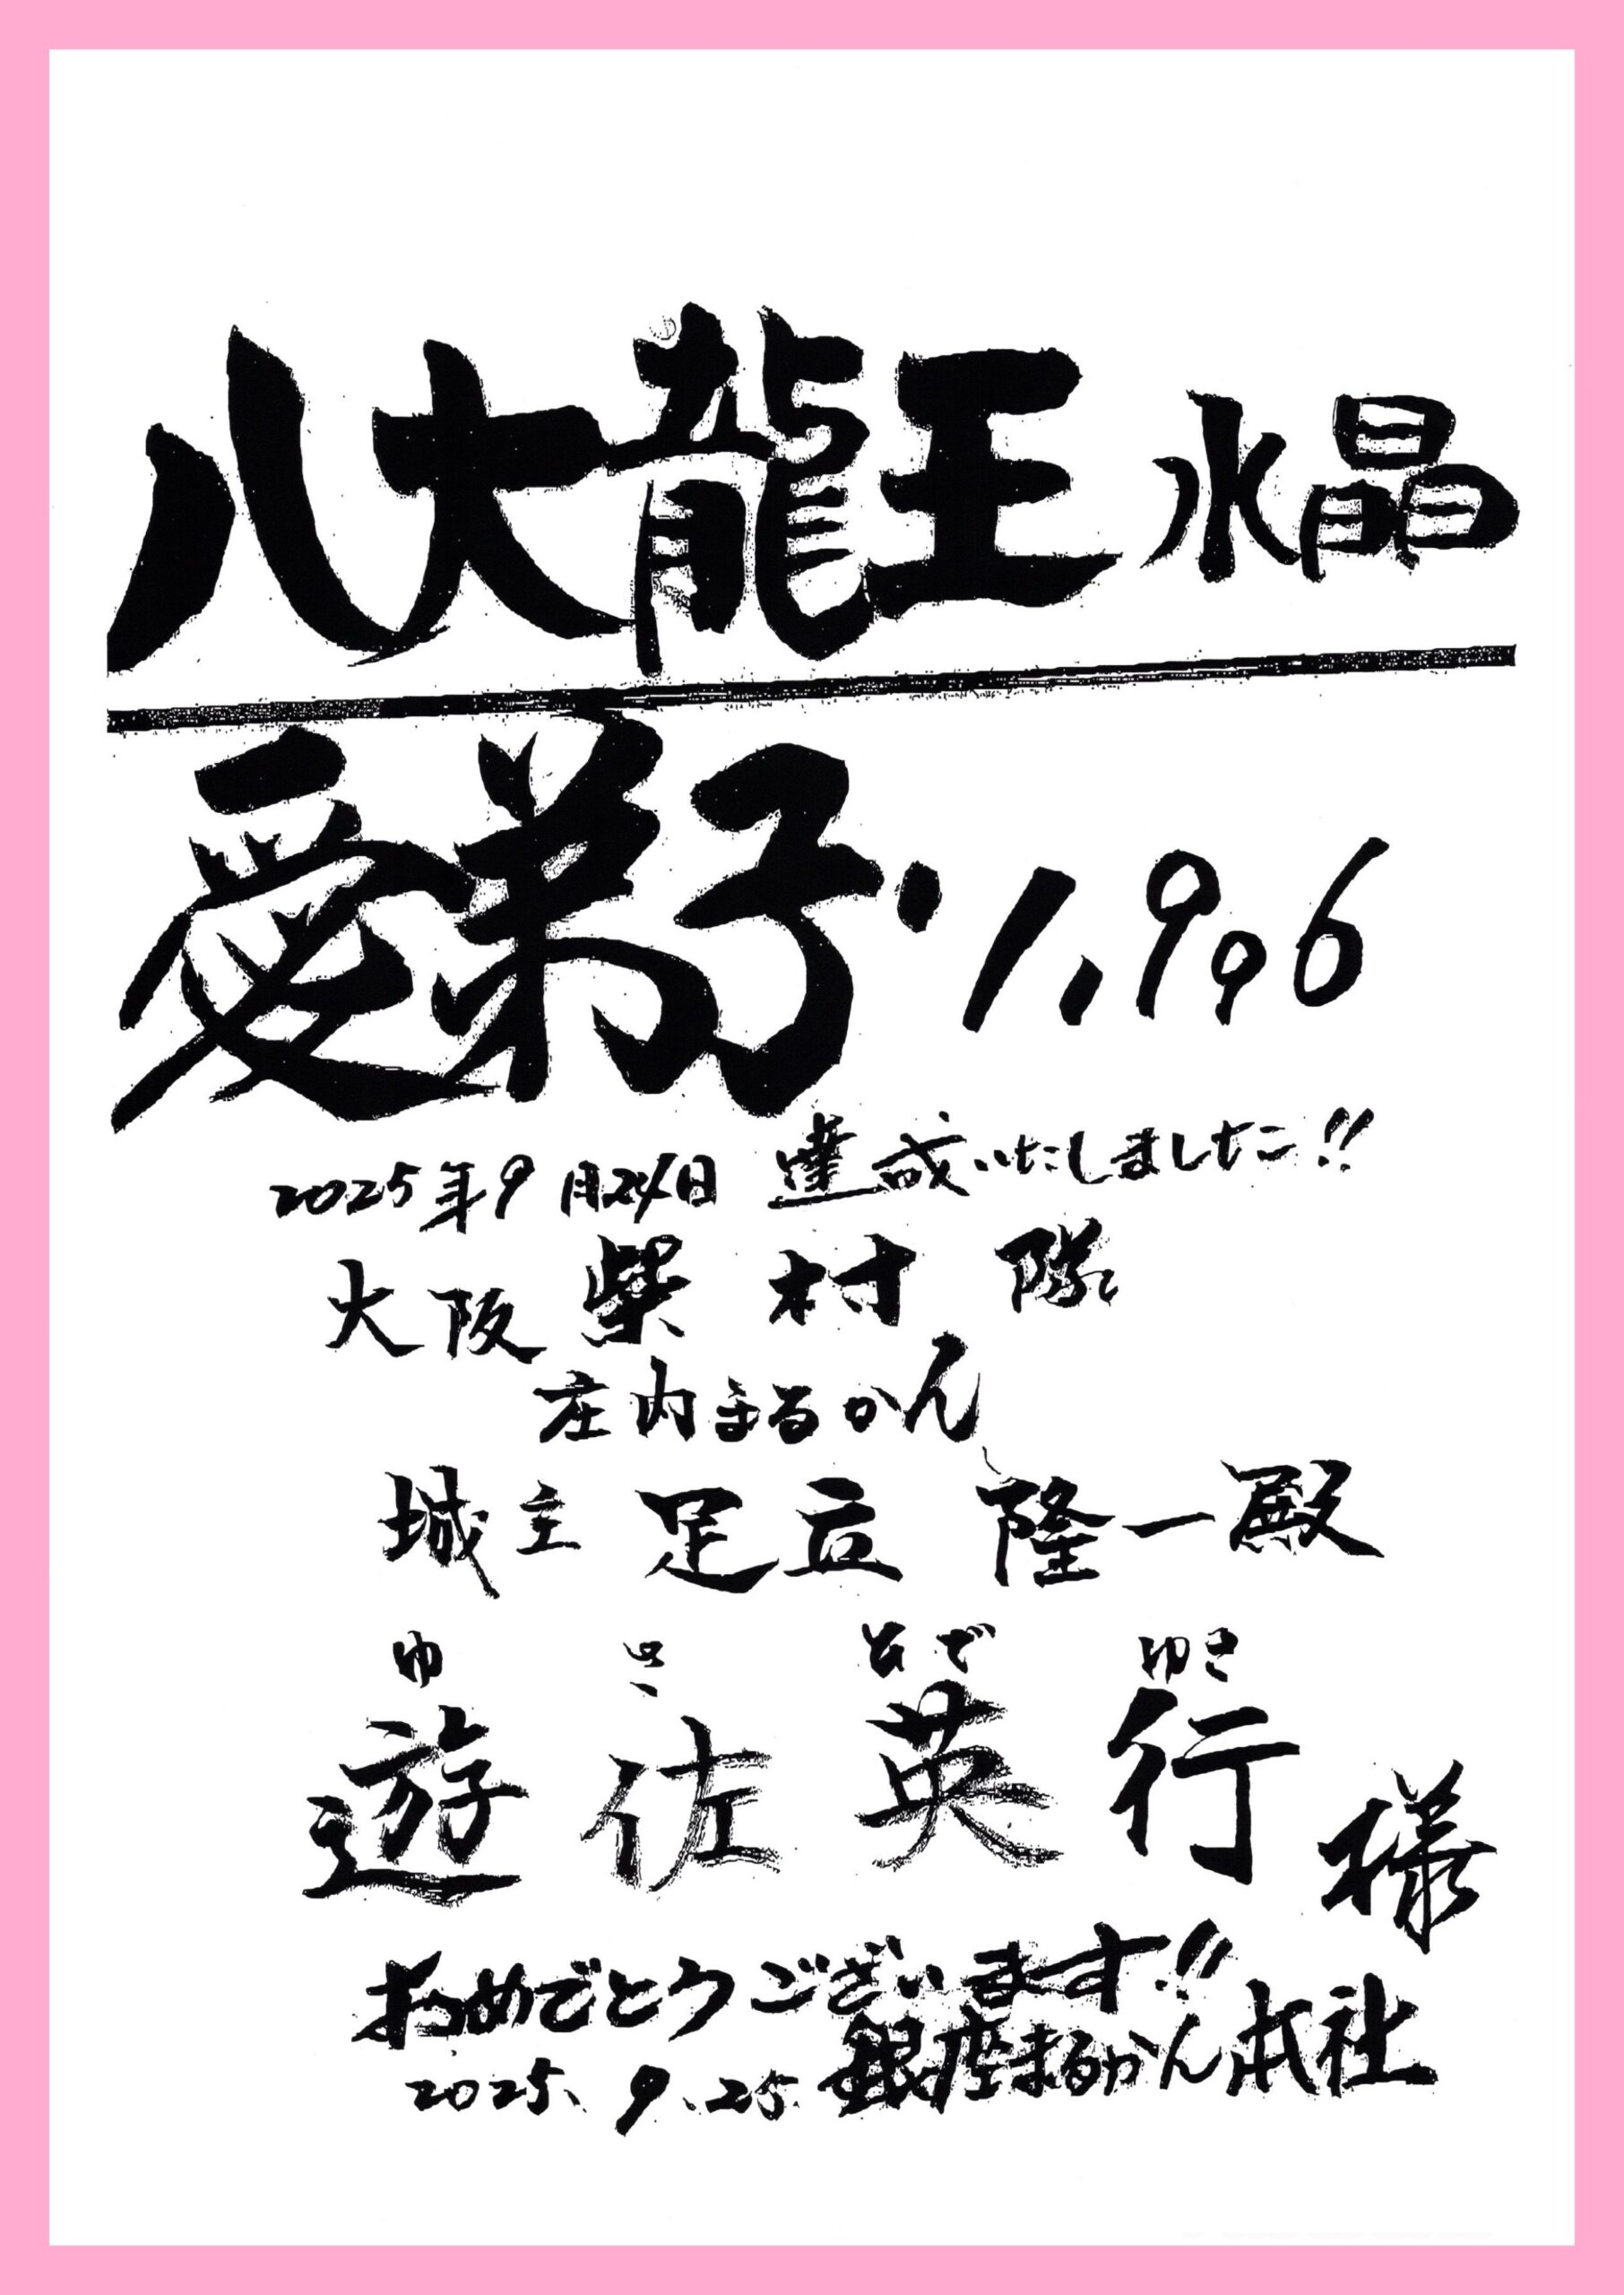 八大龍王 水晶
愛弟子・1,996
2025年9月24日 達成いたしました!!
大阪 柴村 隊
庄内まるかん
城主 足立 隆一殿
ゆ さ ひで ゆき
遊佐英行様
おめでとうございます!!
2025.9.25. 銀座まるかん本社